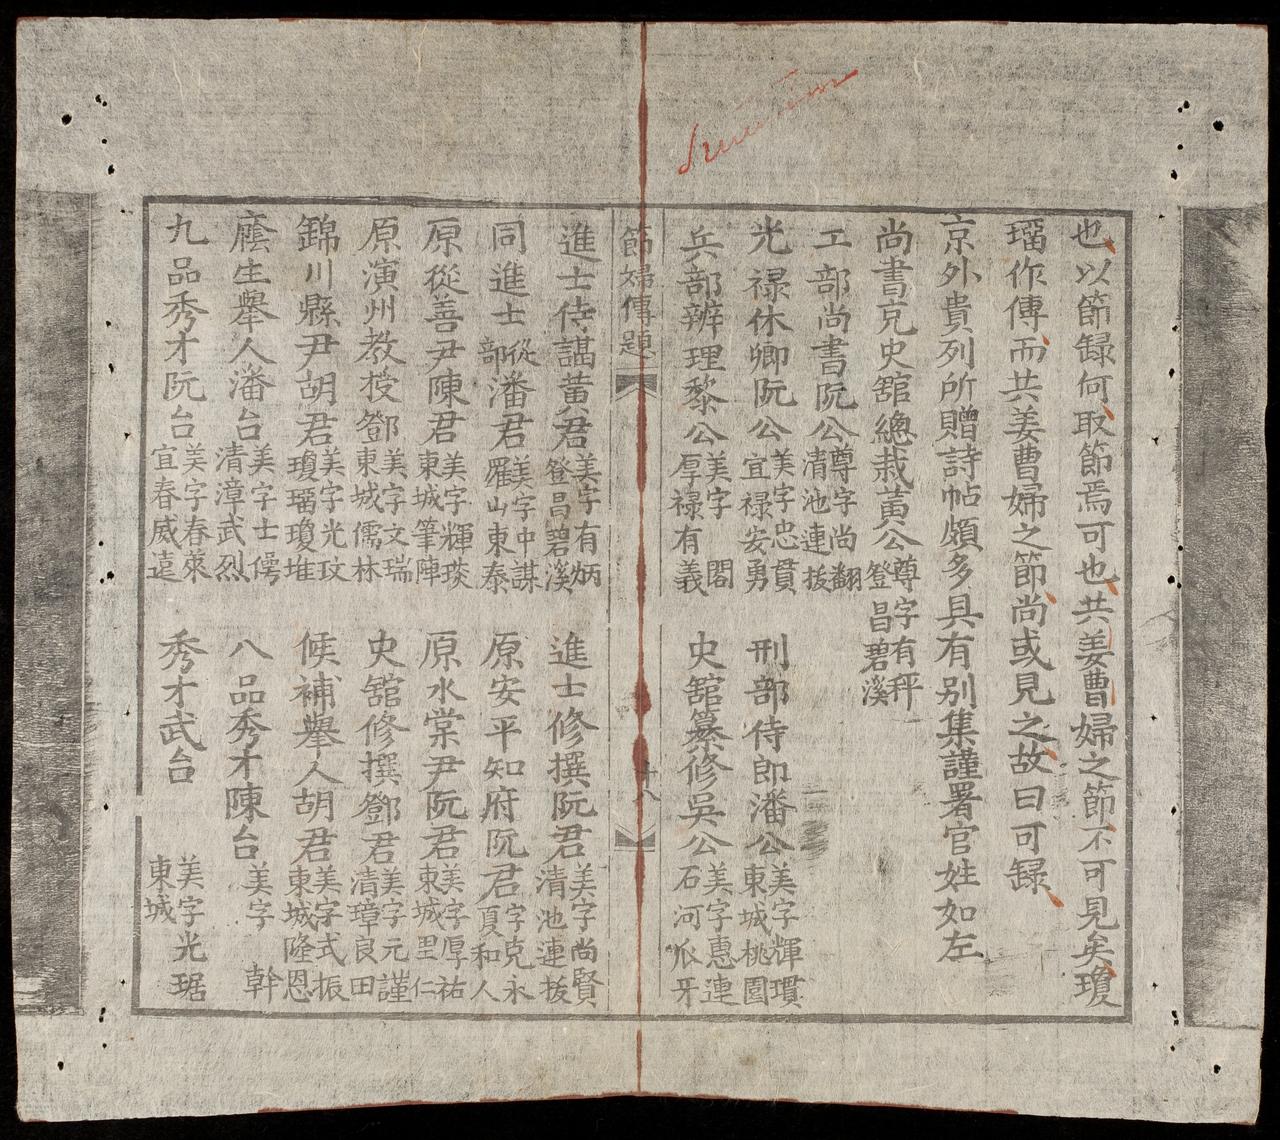 也以節録何取節焉可也共姜曹婦之節不可見矣瓊
瑙作傳而共姜曹婦之節尚或見之故曰可録
京外貴列所贈詩帖頗多具有别集謹署官姓如左
尚書充史舘總裁黄公尊字有秤登昌碧溪
工部尚書阮公尊字尚翻清池連拔
光禄休卿阮公美字忠貫宜禄安勇
刑部侍郎潘公美字輝瑻東城桃園
兵部辨理黎公美字閣厚禄有義
史舘纂修吳公美字惠連石河瓜牙
節婦傳題
十八
進士侍講黄君美字有炳登昌碧溪
進士修撰阮君美字尚賢清池連拔
同進士從部潘君美字中謀羅山東泰
原安平知府阮君字克永夏和人
原從善尹陳君美字輝琰東城筆陣
原水棠尹阮君美字厚祐東城里仁
原演州教授鄧美字文瑞東城儒林
史舘修撰鄧君美字元謹清璋良田
錦川縣尹胡君美字光玟瓊瑠瓊堆
候補舉人胡君美字式振東城隆恩
廕生舉人潘台美字士㒟清漳武烈
八品秀才陳台美字幹
九品秀才阮台美字春萊宜春威遠
秀才武台美字光琚東城